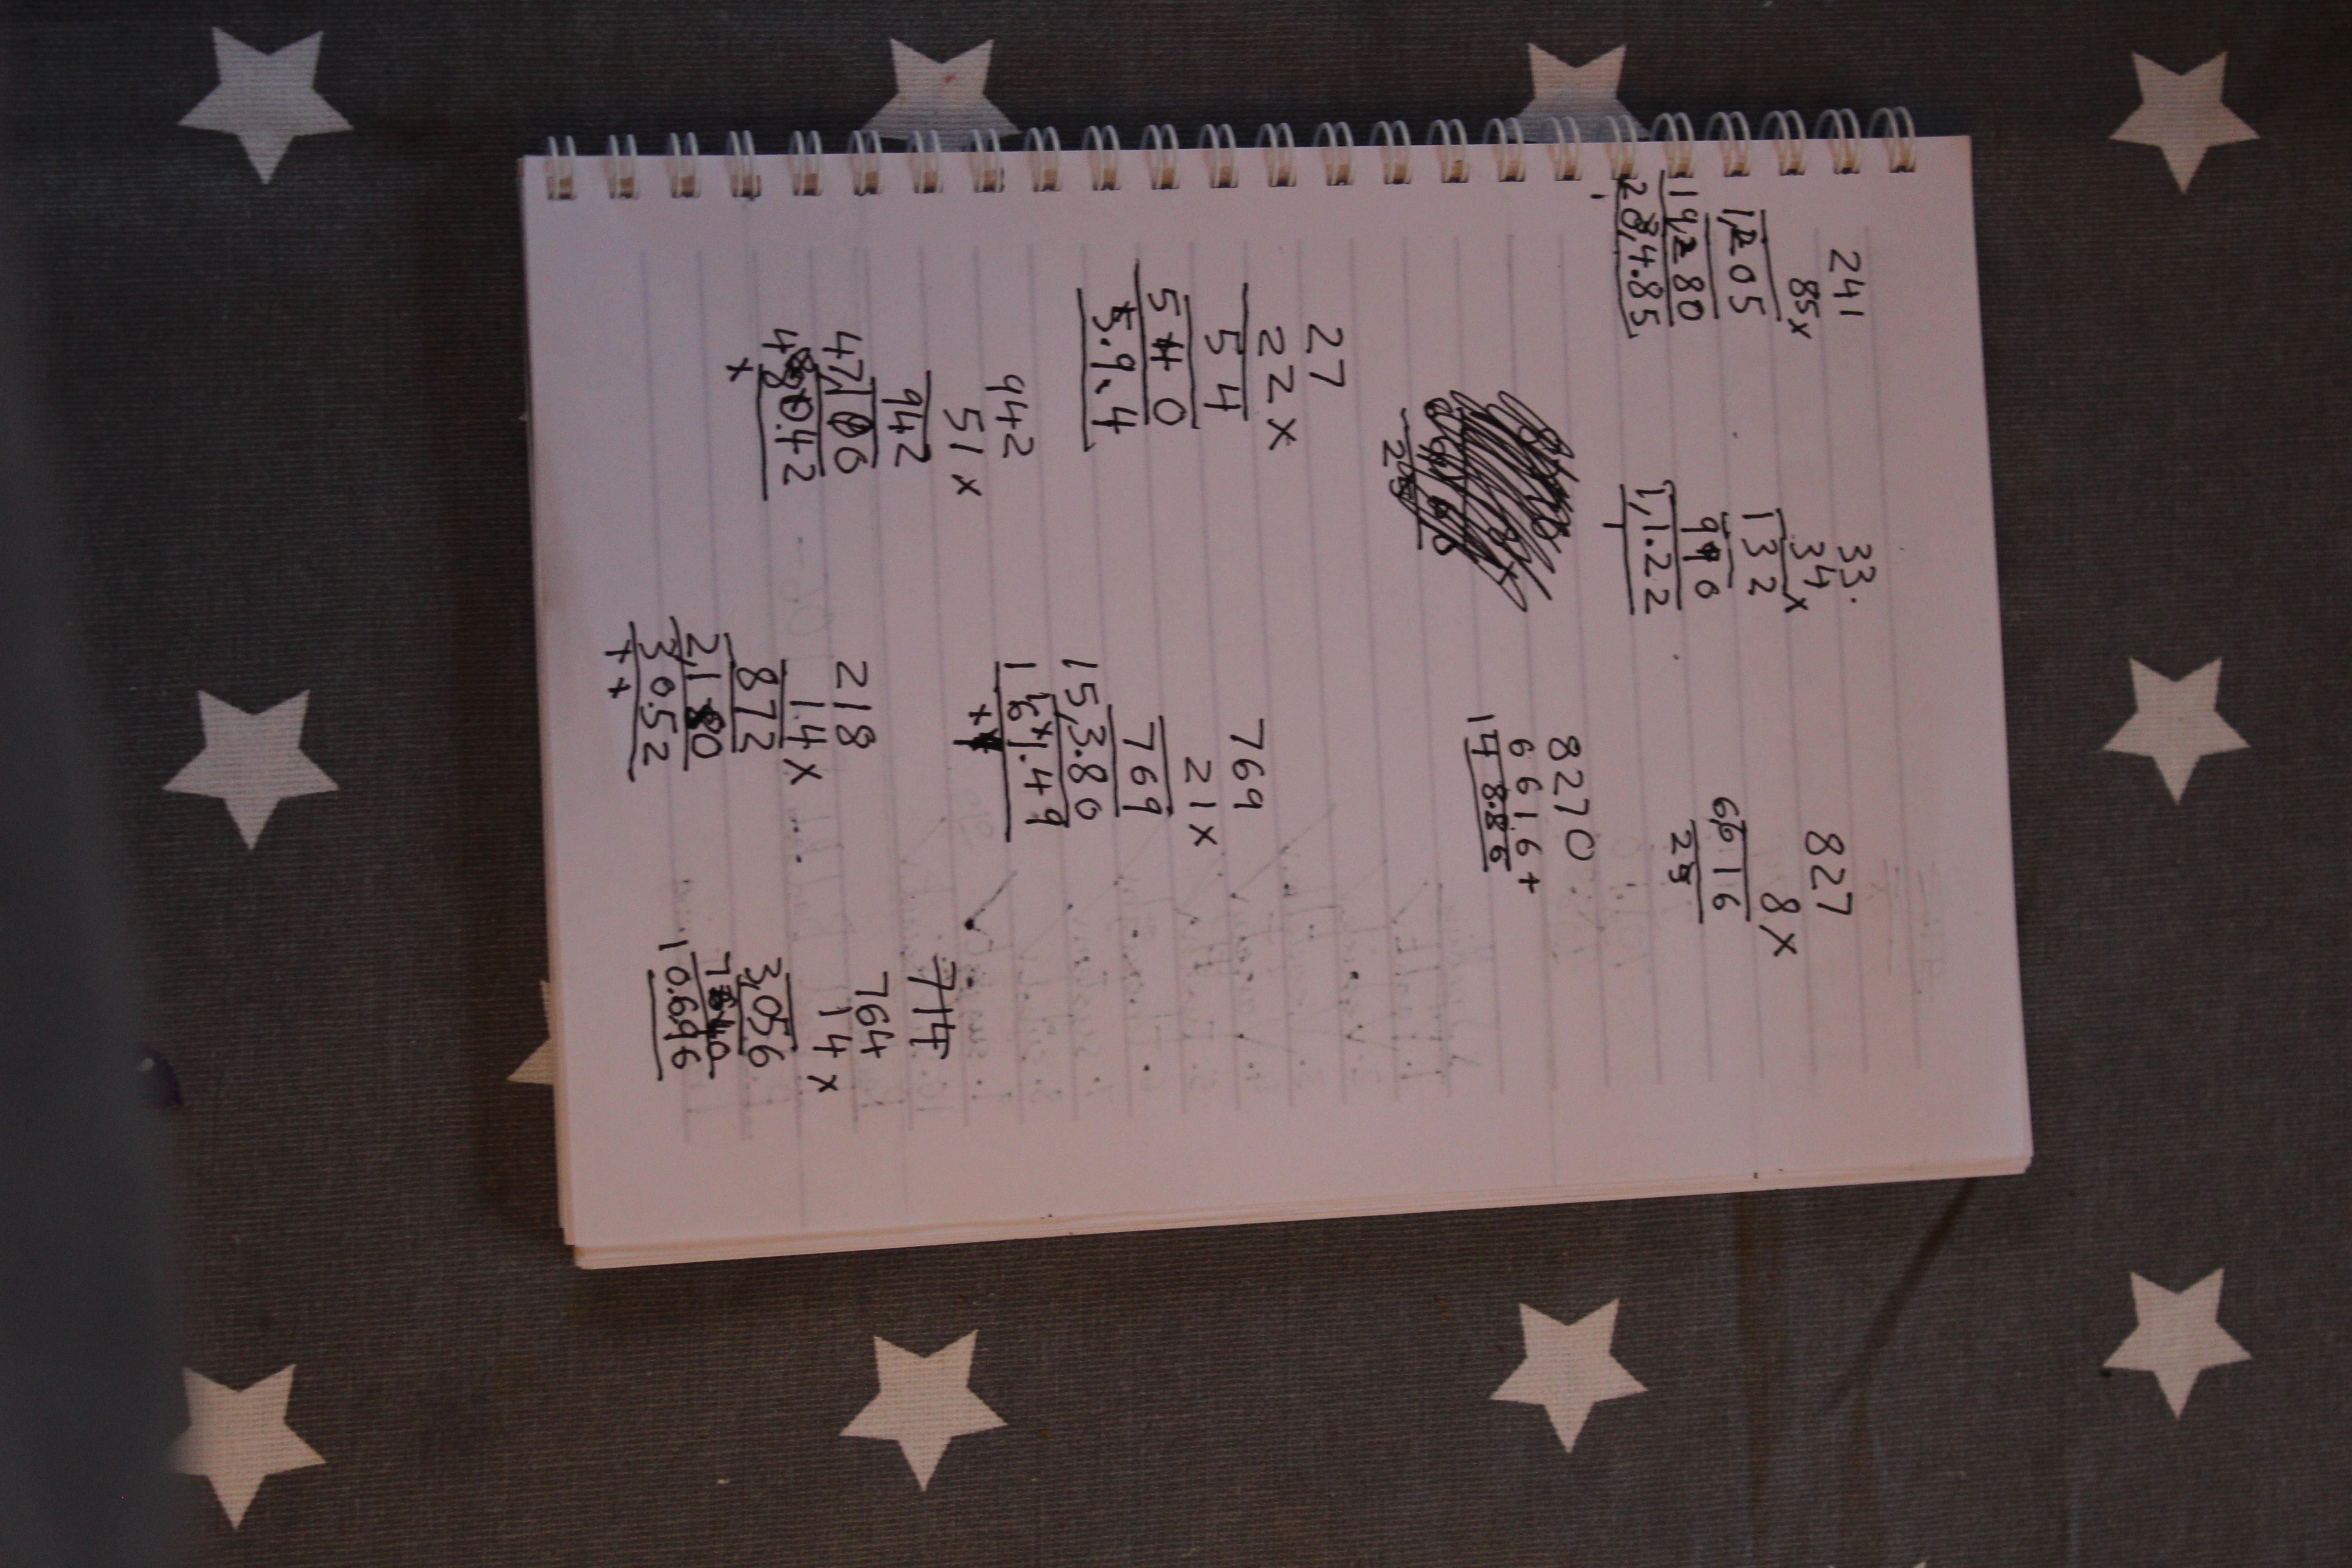 241
85x
1,205
19,280
20,4.85
33.
34x
132
990
1,1.22
827
8x
6616
25
8270
6616+
148.86
27
22x
54
540
5.9.4
769
21x
769
15,3.80
161.49
942
51x
942
47,100
480.42
x
218
14x
872
2,180
30.52
++
714
764
14x
3,056
7640
10.696